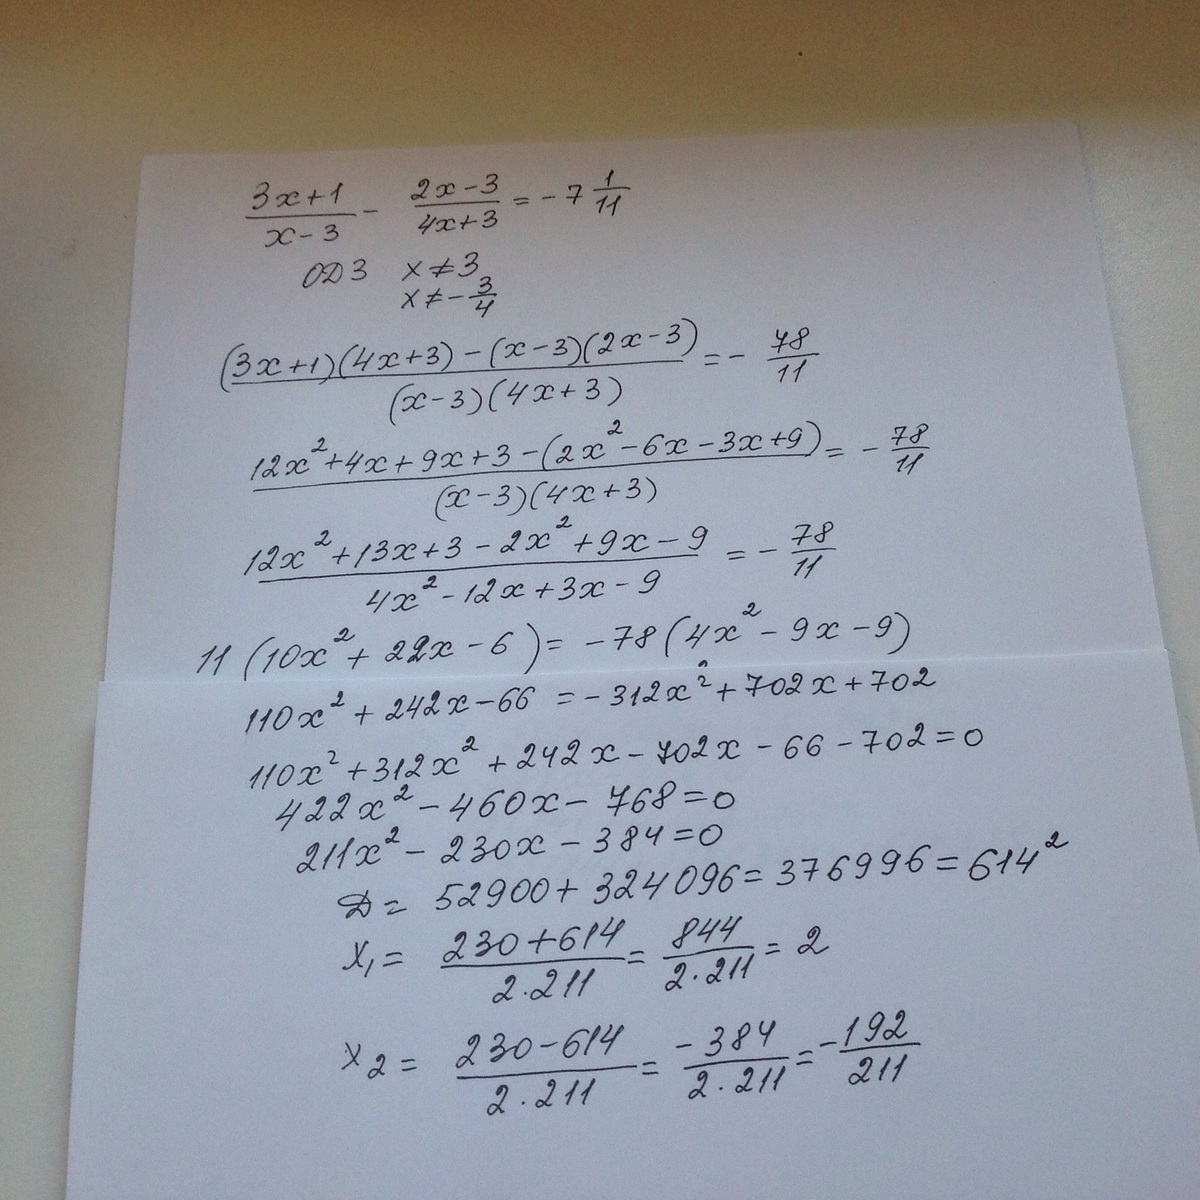 (3x+1)/(x-3) - (2x-3)/(4x+3) = -7 1/11
ОДЗ x ≠ 3
x ≠ -3/4
((3x+1)(4x+3)-(x-3)(2x-3))/((x-3)(4x+3)) = -78/11
(12x²+4x+9x+3-(2x²-6x-3x+9))/((x-3)(4x+3)) = -78/11
(12x²+13x+3-2x²+9x-9)/(4x²-12x+3x-9) = -78/11
11(10x²+22x-6) = -78(4x²-9x-9)
110x²+242x-66 = -312x²+702x+702
110x²+312x²+242x-702x-66-702=0
422x²-460x-768=0
211x²-230x-384=0
D = 52900+324096=376996=614²
x₁ = (230+614)/(2·211) = 844/(2·211) = 2
x₂ = (230-614)/(2·211) = -384/(2·211) = -192/211